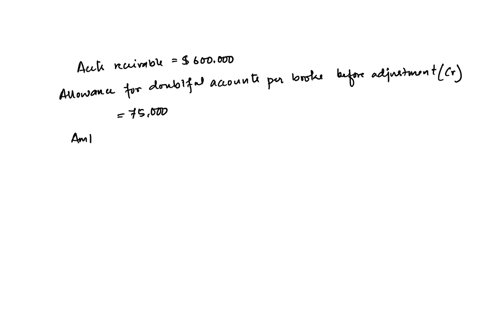 Acct receivable = $600.000
Allowance for doubtful accounts per broke before adjustment (Cr)
= 75,000
Am